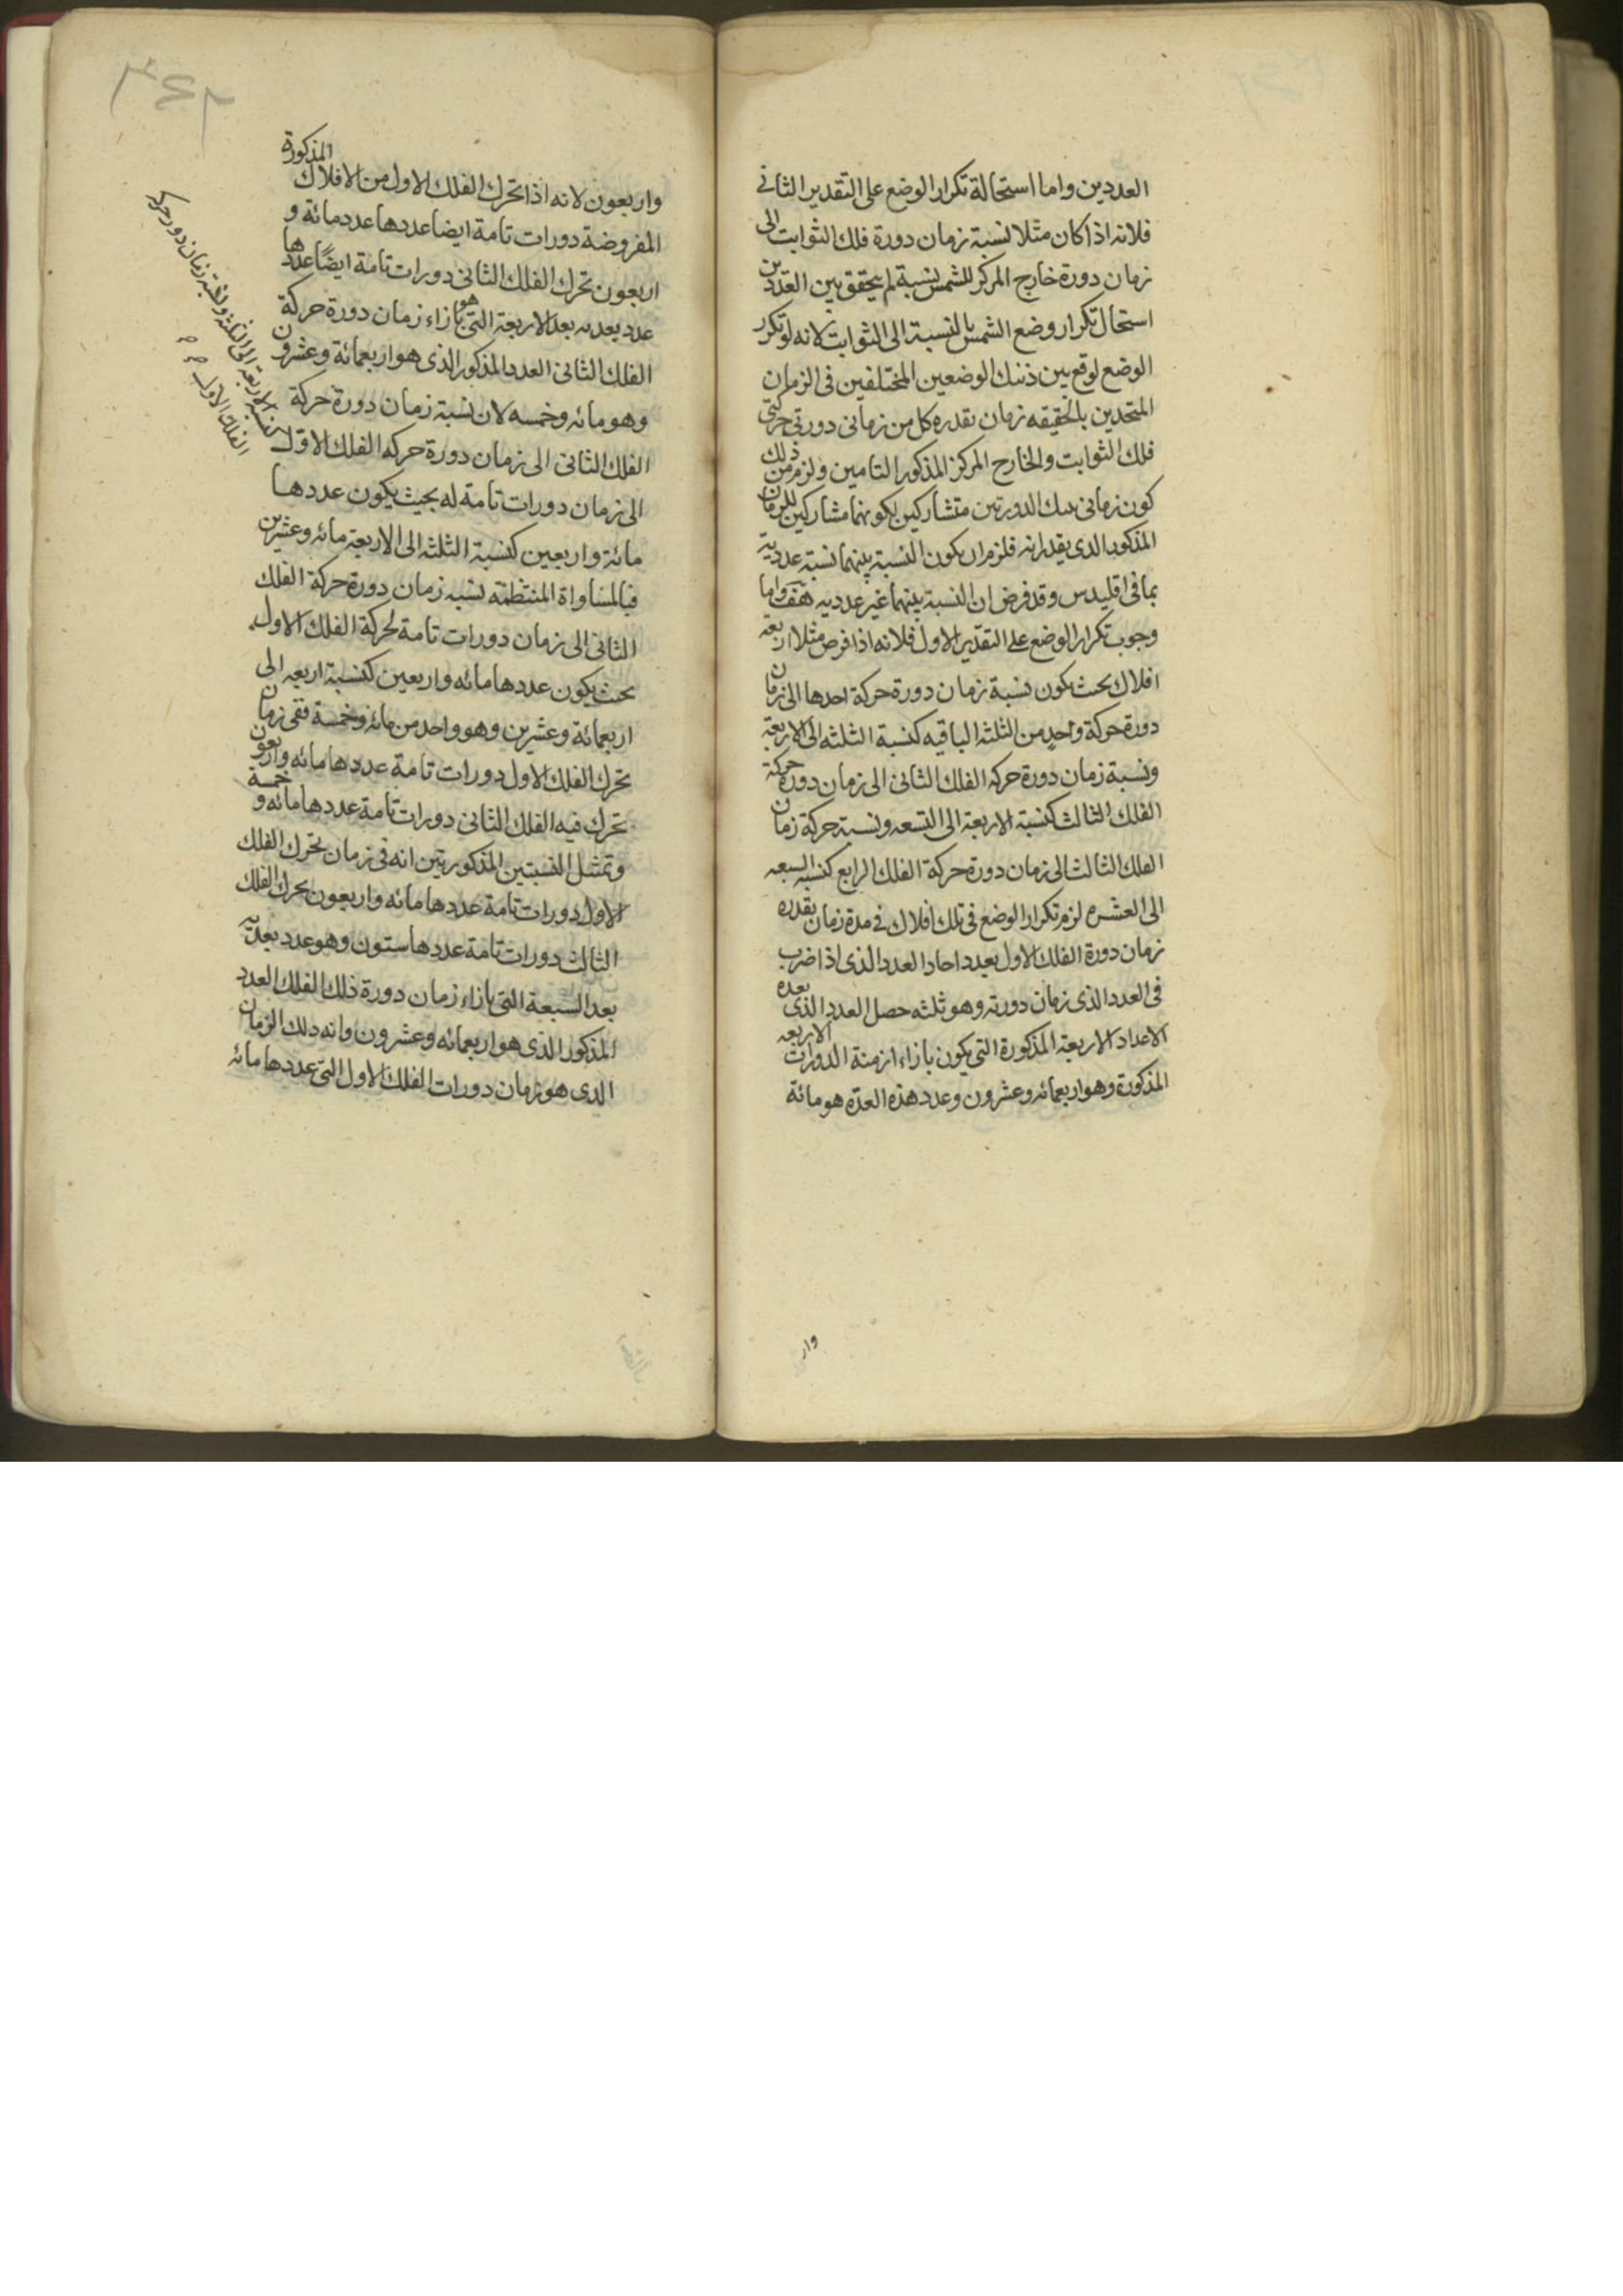 العددين واما استحالة تكرار الوضع على التقدير الثانى
فلانه اذا كان مثلا نسبة زمان دورة فلك الثوابت الى
زمان دورة خارج المركز للشمس نسبة لم يتحقق بين العددين
استحال تكرار وضع الشمس بالنسبة الى الثوابت لانه لو تكرر
الوضع لوقع بين ذينك الوضعين المختلفين فى الزمان
المتحدين بالحقيقه زمان يقدره كل من زمانى دورتى حركتى
فلك الثوابت والخارج المركز المذكور التامين ولزم من ذلك
كون زمانى الدورتين متشاركين لكونهما مشاركين للزمان
المذكور الذى يقدرانه فلزم ان يكون النسبة بينهما نسبة عددية
بما فى اقليدس وقد فرض ان النسبة بينهما غير عدديه هف واما
وجوب تكرار الوضع على التقدير الاول فلانه اذا فرض مثلا اربعة
افلاك بحيث يكون نسبة زمان دورة حركة احدها الى زمان
دورة حركة واحد من الثلثه الباقيه كنسبة الثلثه الى الاربعة
ونسبة زمان دورة حركه الفلك الثانى الى زمان دورة حركة
الفلك الثالث كنسبة الاربعة الى التسعه ونسبة حركة زمان
الفلك الثالث الى زمان دورة حركة الفلك الرابع كنسبه السبعه
الى العشره لزم تكرار الوضع فى تلك افلاك فى مدة زمان يقدره
زمان دورة الفلك الاول بعدد احاد العدد الذى اذا ضرب
فى العدد الذى زمان دورته وهو ثلثه حصل العدد الذى يعده
الاعداد الاربعة المذكورة التى يكون بازاء ازمنة الدورات الاربعه
المذكورة وهو اربعمائه وعشرون وعدد هذه العدّه هو مائة
وار
واربعون لانه اذا تحرك الفلك الاول من الافلاك المذكورة
المفروضة دورات تامة ايضا عددها عدد مائة و
اربعون تحرك الفلك الثانى دورات تامة ايضًا عددها
عدد يعد به بعد الاربعة التى هو بازاء زمان دورة حركة
الفلك الثانى العدد المذكور الذى هو اربعمائة وعشرون
وهو مائه وخمسه لان نسبة زمان دورة حركة
الفلك الثانى الى زمان دورة حركه الفلك الاوّل
كنسبة الاربعة الى الثلثة ونسبة زمان دور حركه
الفلك الاول
الى زمان دورات تامة له بحيث يكون عددها
مائة واربعين كنسبة الثلثه الى الاربعة مائه وعشرين
فبالمساواة المنتظمة نسبه زمان دورة حركة الفلك
الثانى الى زمان دورات تامة لحركة الفلك الاول
بحيث يكون عددها مائه واربعين كنسبة اربعه الى
اربعمائة وعشرين وهو واحد من مائه وخمسة ففى زمان
تحرك الفلك الاول دورات تامة عددها مائه واربعون
تحرك فيه الفلك الثانى دورات تامة عددها مائه و خمسة
وتمثل النسبتين المذكورتين انه فى زمان تحرك الفلك
الاول دورات تامة عددها مائه واربعون تحرك الفلك
الثالث دورات تامة عددها ستون وهو عدد يعد به
بعد السبعة التى بازاء زمان دورة ذلك الفلك العدد
المذكور الذى هو اربعمائه وعشرون وانه ذلك الزمان
الذى هو زمان دورات الفلك الاول التى عددها مائه